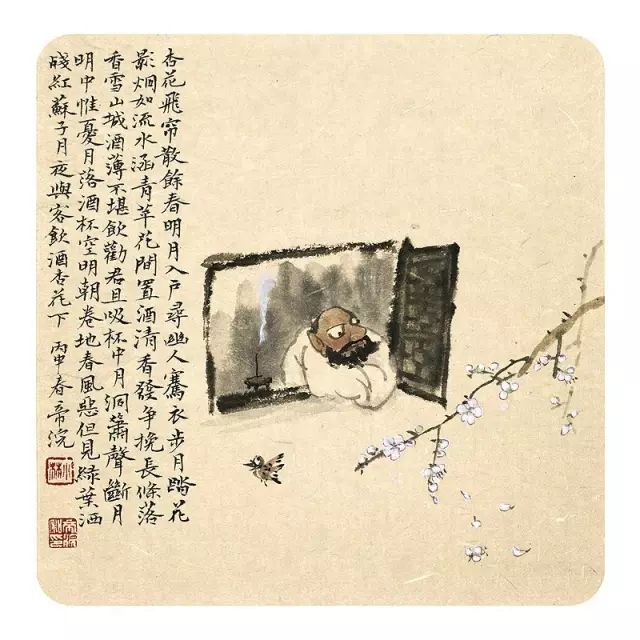 杏花飛帘散餘春明月入戶尋幽人騫衣步月踏花
影烱如流水涵青苹花間置酒清香發争挽長條落
香雪山城酒薄不堪飲勸君且吸杯中月洞簫聲斷月
明中惟憂月落酒杯空明朝卷地春風惡但見綠葉栖
殘紅蘇子月夜與客飲酒杏花下 丙申春帝浣
小林